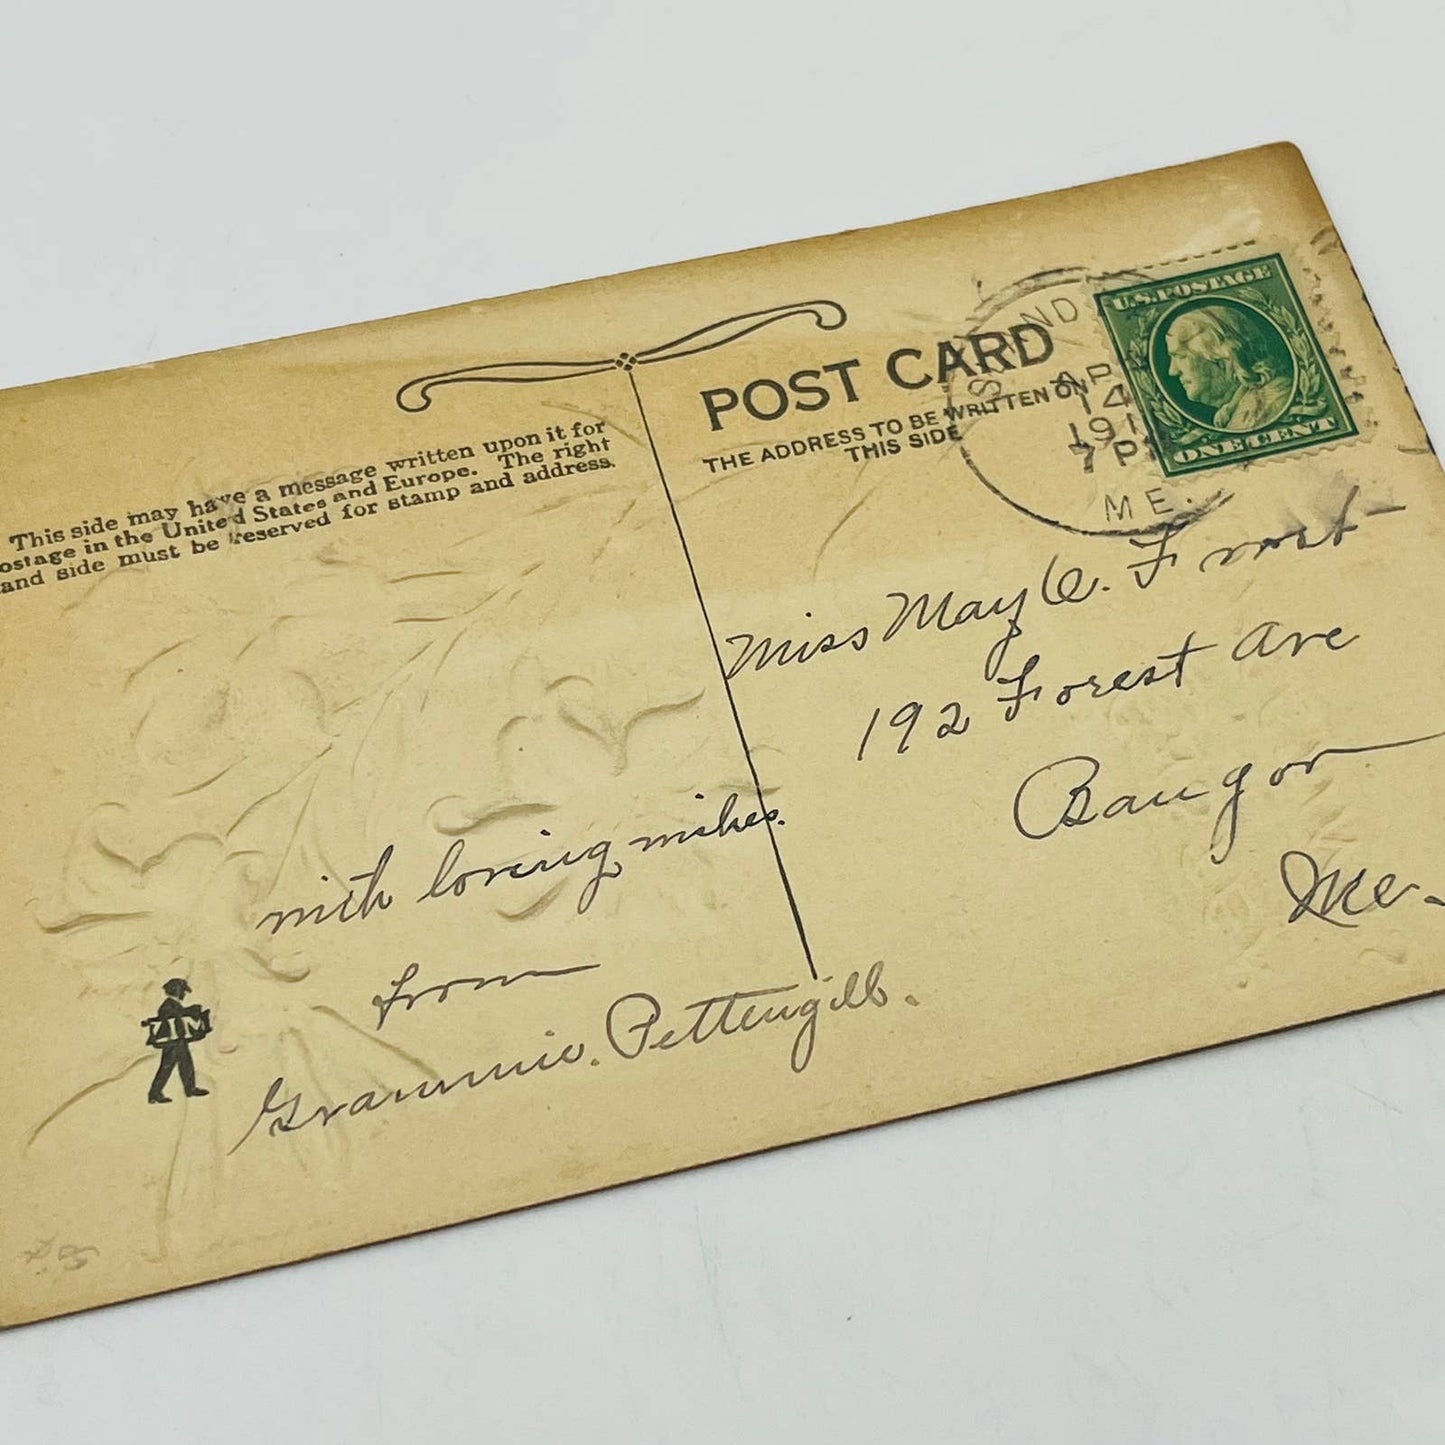 POST CARD
THE ADDRESS TO BE WRITTEN ON
THIS SIDE
This side may have a message written upon it for
ostage in the United States and Europe. The right
and side must be reserved for stamp and address.
U.S. POSTAGE
ONE CENT
AP
14
191
7 P
ME.
Miss May E. Frost
192 Forest Ave
Bangor
Me.
with loving wishes.
from
Grammie. Pettengill.